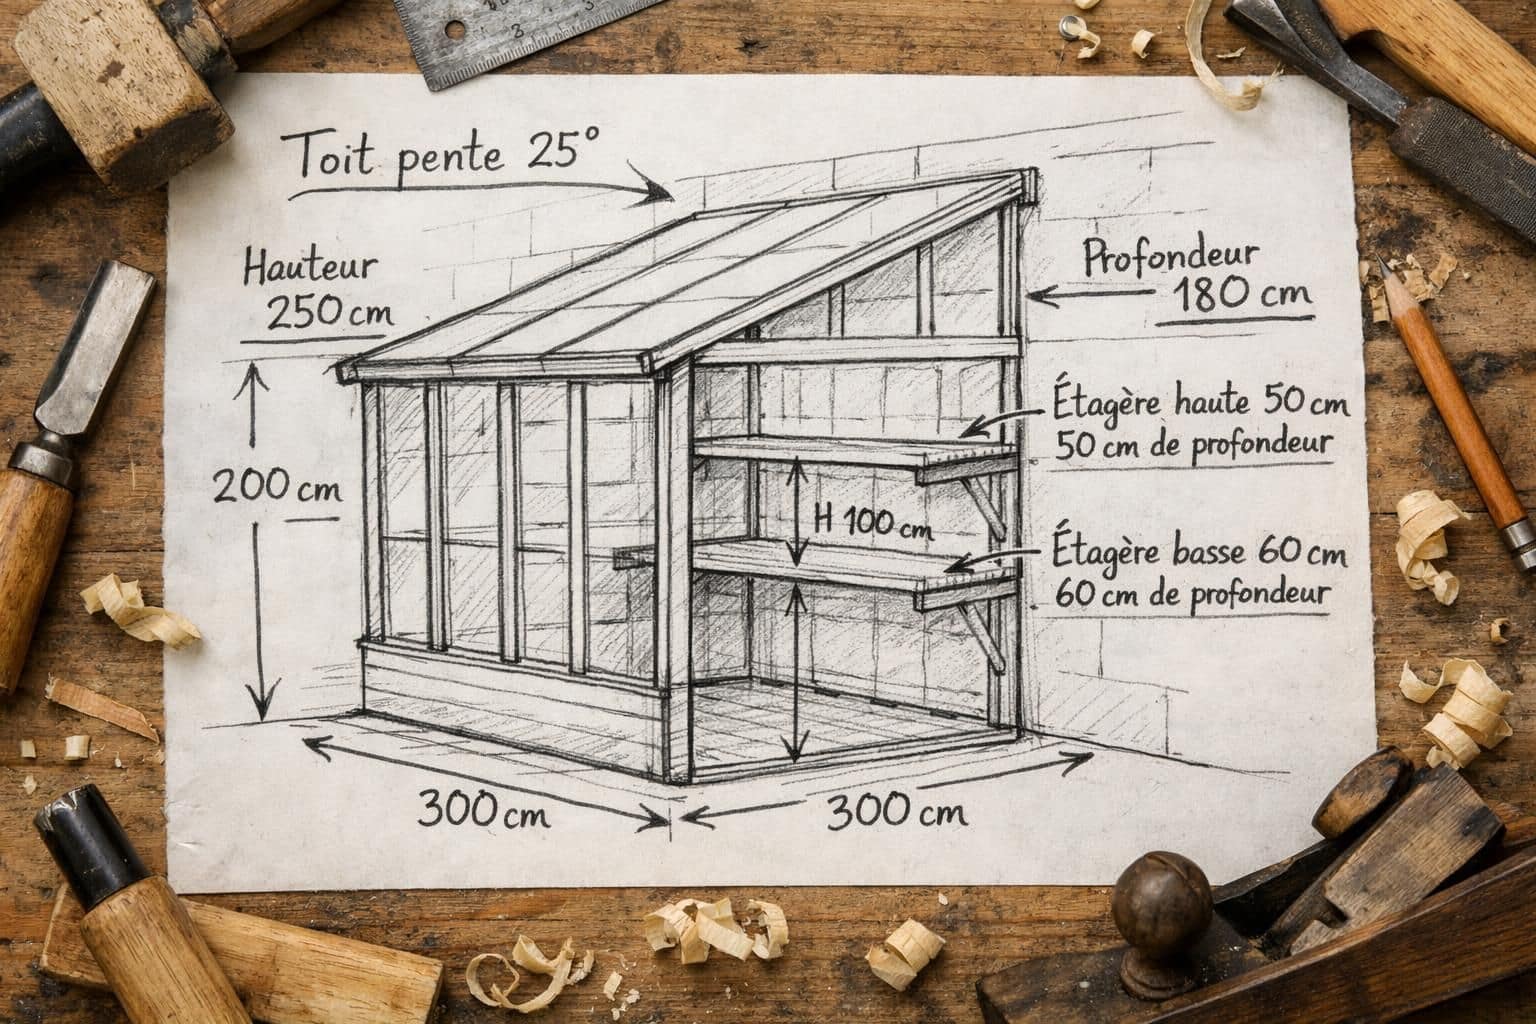 Toit pente 25°
Hauteur
250 cm
Profondeur
180 cm
Étagère haute 50 cm
50 cm de profondeur
200 cm
H 100 cm
Étagère basse 60 cm
60 cm de profondeur
300 cm
300 cm